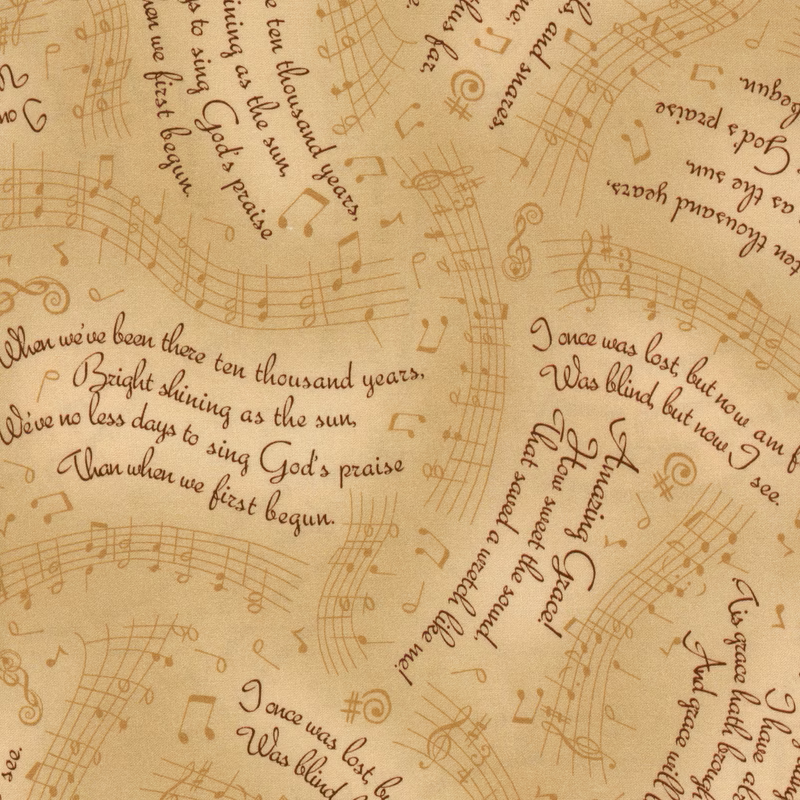 e ten thousand years,
ining as the sun,
ys to sing God's praise
hen we first begun.
thus far,
ils and snares,
begun.
God's praise
as the sun,
ten thousand years,
When we've been there ten thousand years,
Bright shining as the sun,
We've no less days to sing God's praise
Than when we first begun.
I once was lost, but now am f
Was blind, but now I
see.
Amazing Grace!
How sweet the sound
That saved a wretch like me!
'Tis grace hath brough
And grace will
I have al
I once was lost, bu
Was blind,
see.